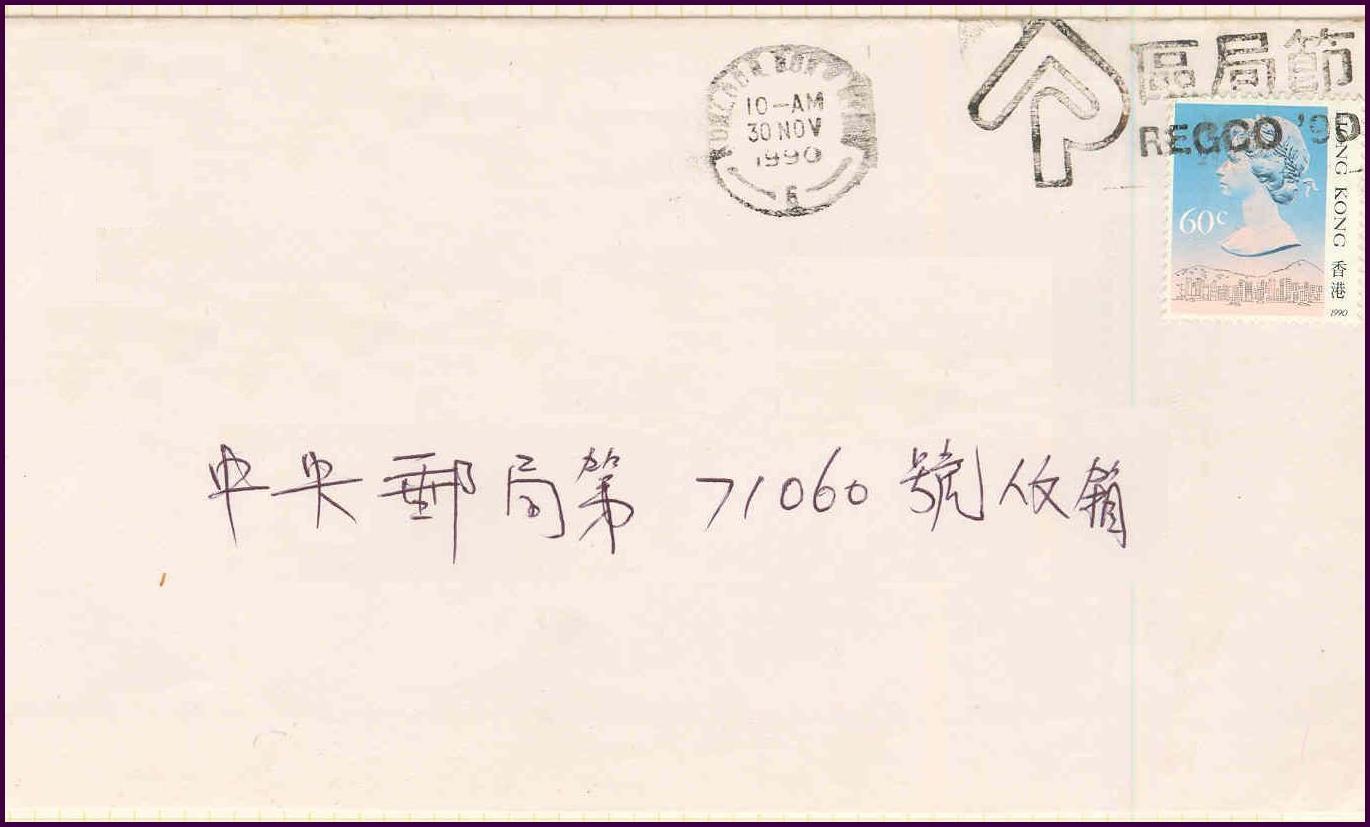 10-AM
30 NOV
1990
6
區局節
REGCO '90
HONG KONG 香港
60c
1990
中央郵局第 71060 號收箱